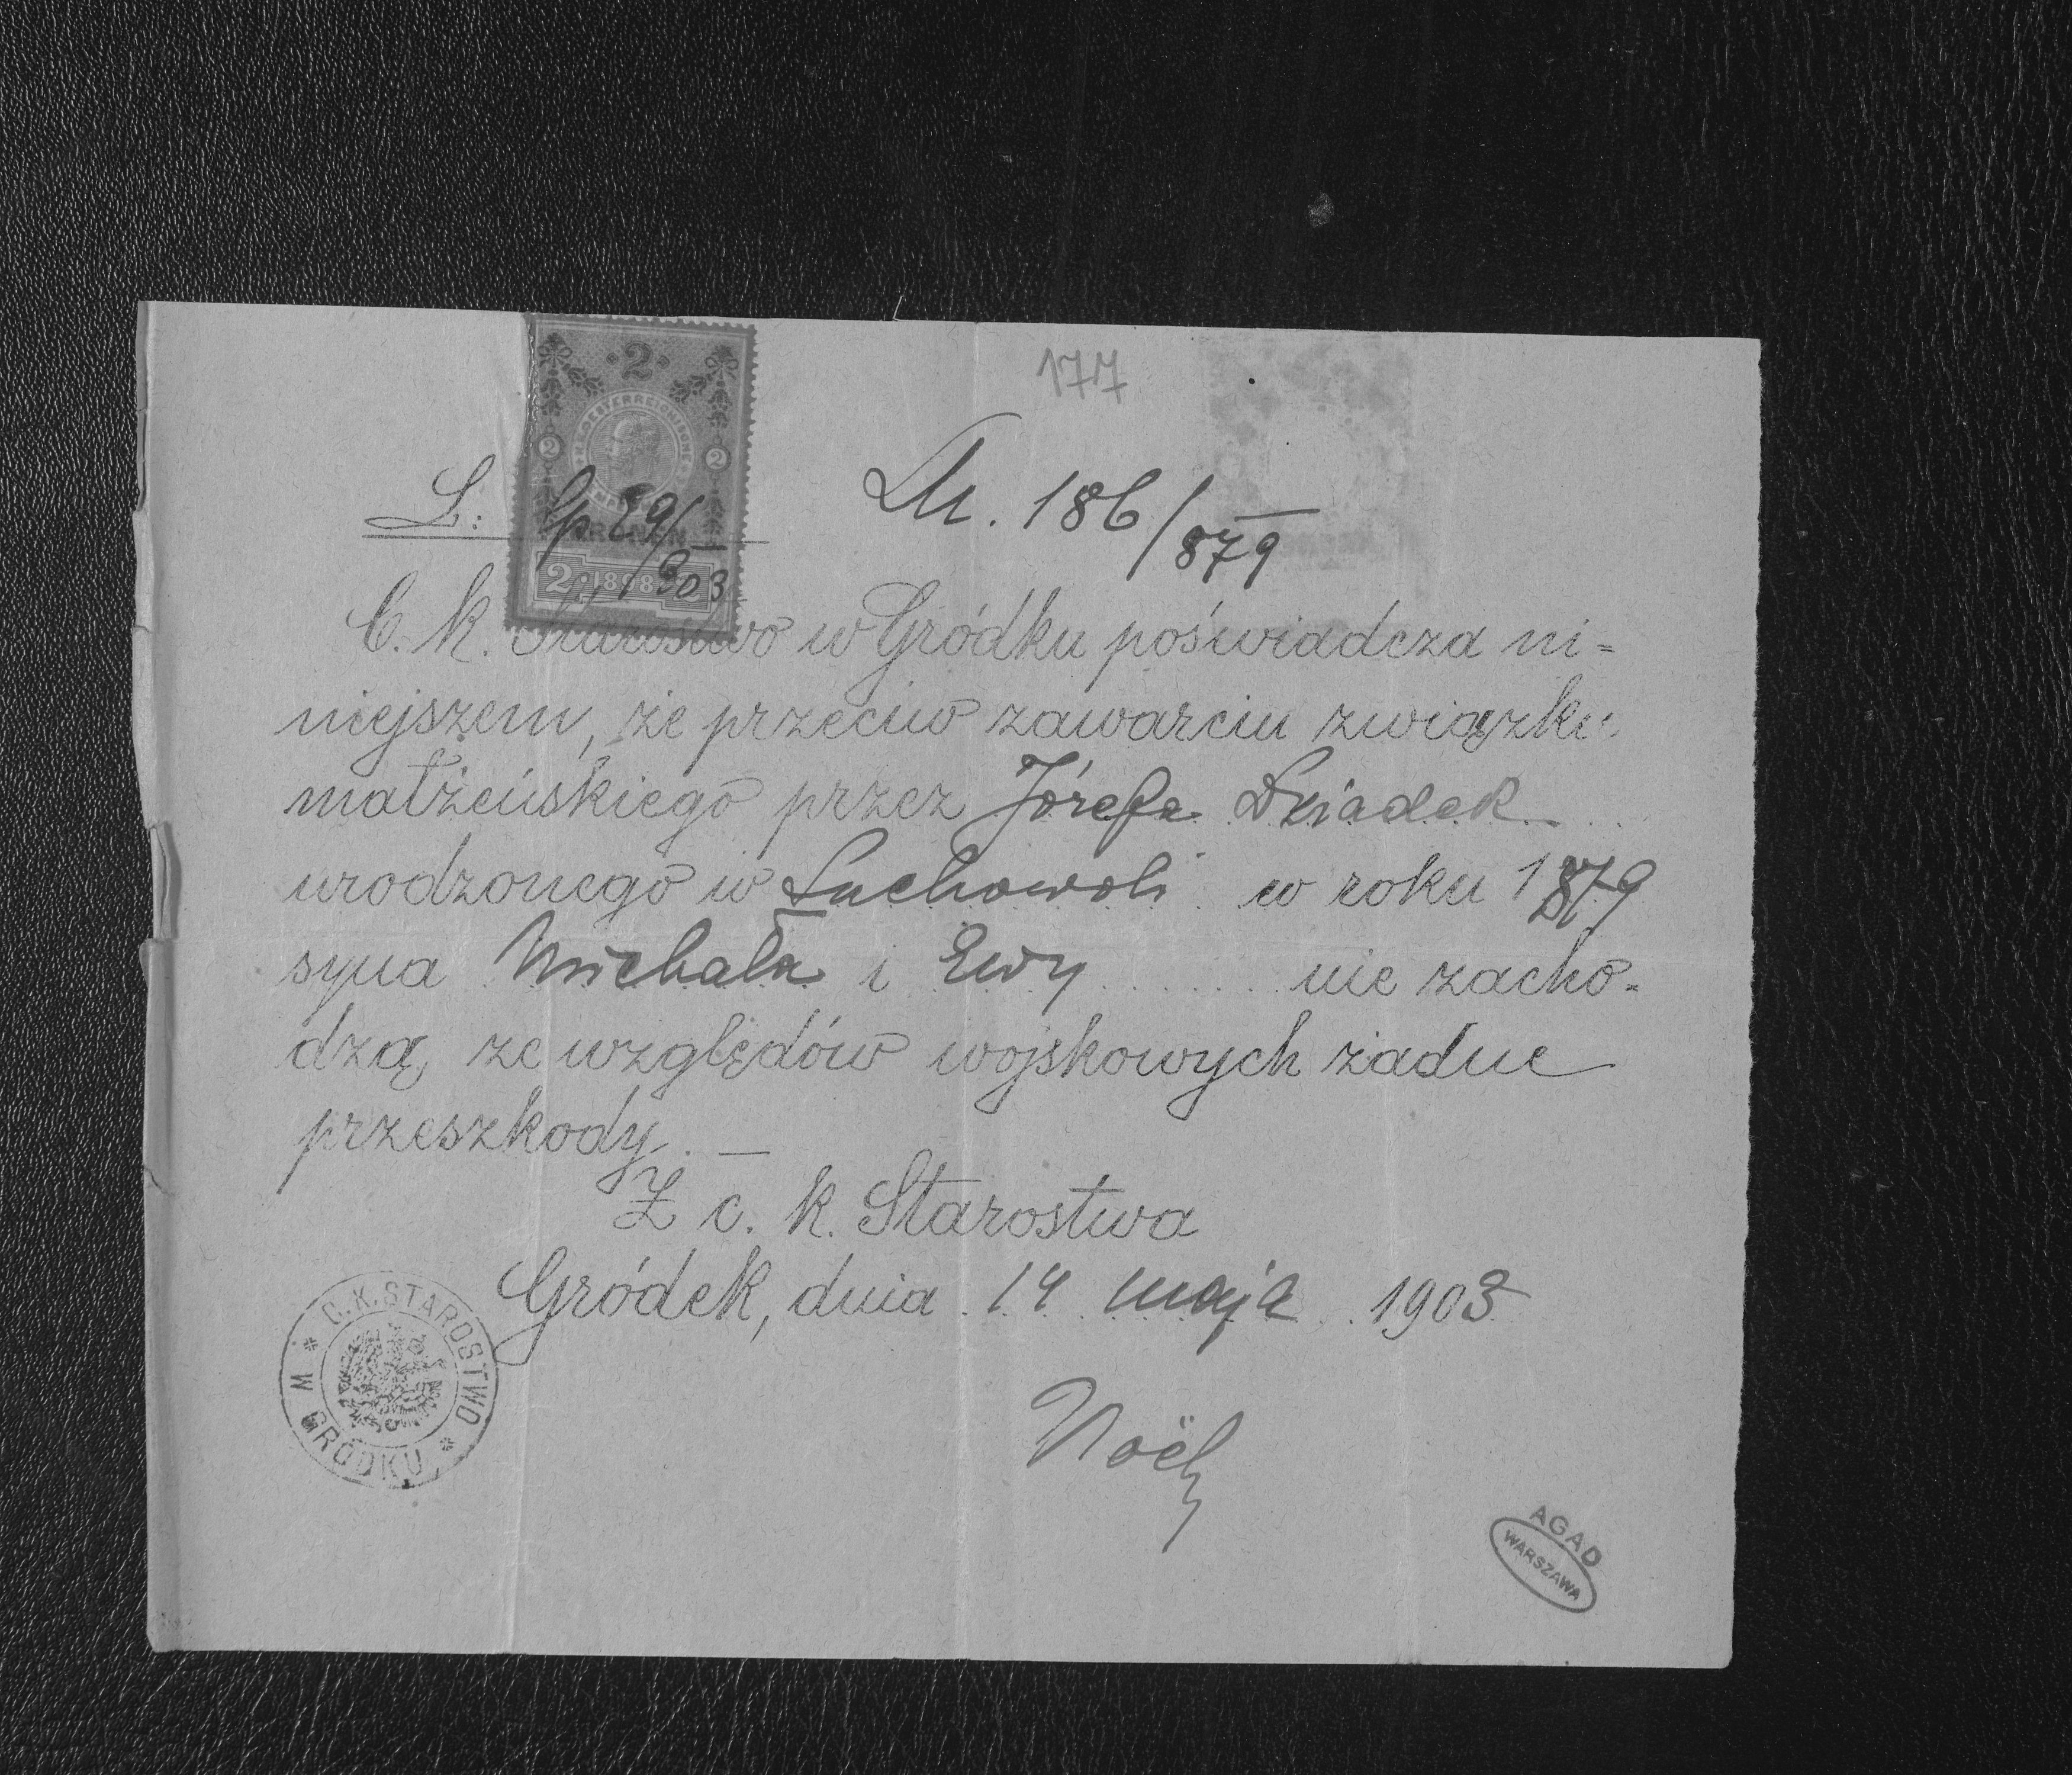 177
L: Gp 29/903
186/879
C. K. Starostwo w Gródku poświadcza ni=
niejszem, że przeciw zawarciu związku
małżeńskiego przez Józefa Dziadek
urodzonego w Suchowoli w roku 1879
syna Michała i Ewy nie zacho-
dzą ze względów wojskowych żadne
przeszkody. —
Z c. k. Starostwa
Gródek, dnia 14 maja 1903
C. K. STAROSTWO * W GRÓDKU *
AGAD
WARSZAWA
2
2 2
2 1898